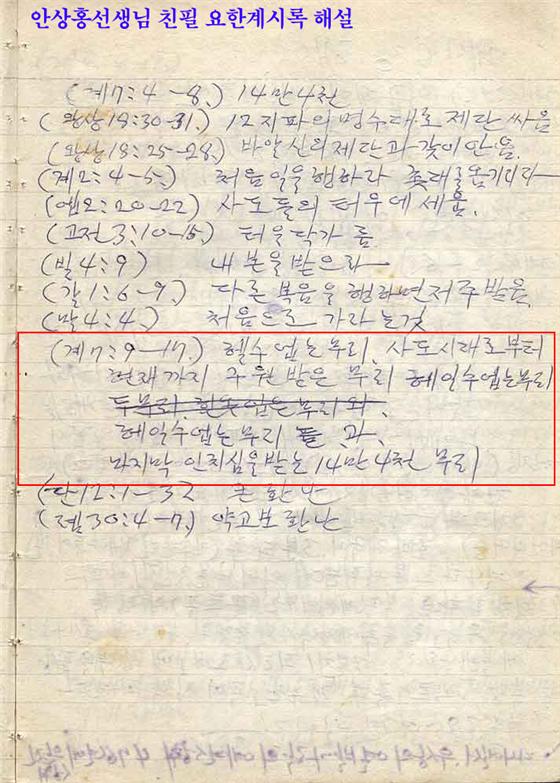 안상홍선생님 친필 요한계시록 해설
(계7:4-8.) 14만4천
(왕상18:30-31.) 12지파의 명수대로 제단 쌓음
(왕상18:25-28.) 바알신의 제단과 같이 안음.
(계2:4-5.) 처음 일을 행하라 촛대를 옴기리라
(엡2:20-22) 사도들의 터우에 세움.
(고전3:10-15.) 터을 닥가름
(빌4:9) 내 본을 받으라
(갈1:6-9.) 다른 복음을 행하면 저주 받음.
(말4:4.) 처음으로 가라는것
(계7:9-17.) 헬수 엡는 무리. 사도시대로부터
현재까지 구원 받은 무리 헤일수엡는무리
두무리. 흰옷 입은 무리와.
헤일수 엡는 무리 들과.
마지막 인치심을 받는 14만 4천 무리
(단12:1- 큰 환난
(렘30:4-7.) 약고보 환난